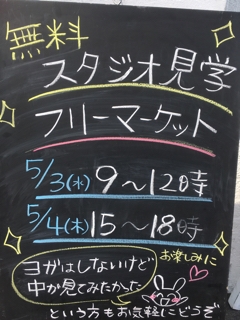 無料
スタジオ見学
フリーマーケット
5/3(水) 9〜12時
5/4(木) 15〜18時
お楽しみに
ヨガはしないけど
中が見てみたかった
という方もお気軽にどうぞ